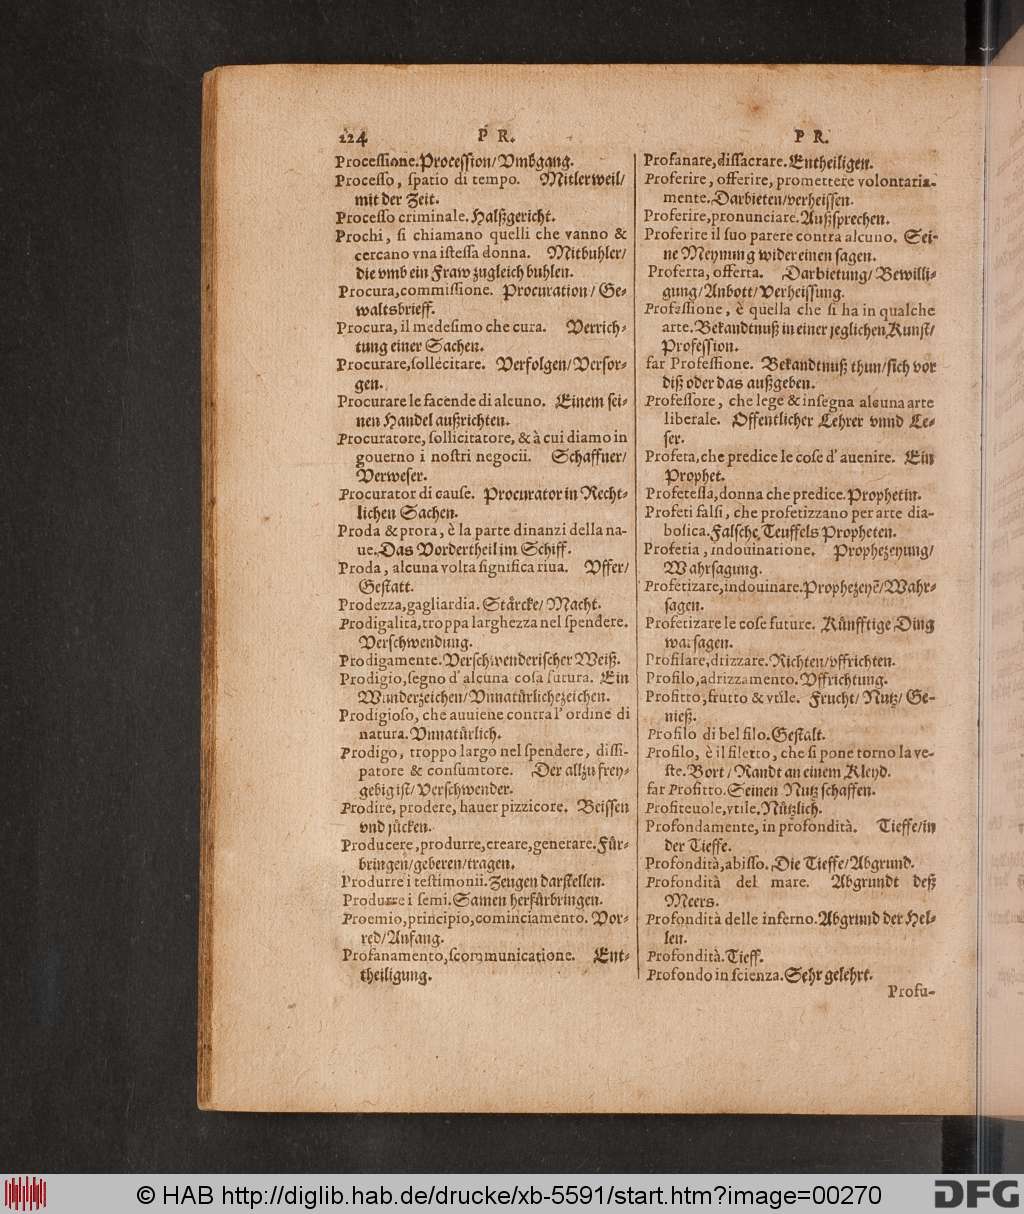 224 P R. P R.
Processione. Procession/ Vmbgang.
Processo, spatio di tempo. Mitlerweil/
mit der Zeit.
Processo criminale. Halßgericht.
Prochi, si chiamano quelli che vanno &
cercano vna istessa donna. Mitbuhler/
die vmb ein Fraw zugleich buhlen.
Procura, commissione. Procuration/ Ge-
waltsbrieff.
Procura, il medesimo che cura. Verrich-
tung einer Sachen.
Procurare, sollecitare. Verfolgen/ Versor-
gen.
Procurare le facende di alcuno. Einem sei-
nen Handel außrichten.
Procuratore, sollicitatore, & à cui diamo in
gouerno i nostri negocii. Schaffner/
Verweser.
Procurator di cause. Procurator in Recht-
lichen Sachen.
Proda & prora, è la parte dinanzi della na-
ue. Das Vordertheil im Schiff.
Proda, alcuna volta significa riua. Vffer/
Gestatt.
Prodezza, gagliardia. Stårcke/ Macht.
Prodigalita, troppa larghezza nel spendere.
Verschwendung.
Prodigamente. Verschwenderischer Weiß.
Prodigio, segno d' alcuna cosa futura. Ein
Wunderzeichen/ Vnnatůrliche zeichen.
Prodigioso, che auuiene contra l' ordine di
natura. Vnnatůrlich.
Prodigo, troppo largo nel spendere, dissi-
patore & consumtore. Der allzu frey-
gebig ist/ Verschwender.
Prodire, prodere, hauer pizzicore. Beissen
vnd jůcken.
Producere, produrre, creare, generare. Fůr-
bringen/ geberen/ tragen.
Produrre i testimonii. Zeugen darstellen.
Produrre i semi. Samen herfůrbringen.
Proemio, principio, cominciamento. Vor-
red/ Anfang.
Profanamento, scommunicatione. Ent-
theiligung.
Profanare, dissacrare. Entheiligen.
Proferire, offerire, promettere volontaria-
mente. Darbieten/ verheissen.
Proferire, pronunciare. Außsprechen.
Proferire il suo parere contra alcuno. Sei-
ne Meynung wider einen sagen.
Proferta, offerta. Darbietung/ Bewilli-
gung/ Anbott/ Verheissung.
Professione, è quella che si ha in qualche
arte. Bekandtnuß in einer jeglichen Kunst/
Profession.
far Professione. Bekandtnuß thun/ sich vor
diß oder das außgeben.
Professore, che lege & insegna alcuna arte
liberale. Offentlicher Lehrer vnnd Le-
ser.
Profeta, che predice le cose d' auenire. Ein
Prophet.
Profetessa, donna che predice. Prophetin.
Profeti falsi, che profetizzano per arte dia-
bolica. Falsche, Teuffels Propheten.
Profetia, indouinatione. Prophezeyung/
Wahrsagung.
Profetizare, indouinare. Prophezeyẽ/ Wahr-
sagen.
Profetizare le cose future. Kůnfftige Ding
warsagen.
Profilare, drizzare. Richten/ vffrichten.
Profilo, adrizzamento. Vffrichtung.
Profitto, frutto & vtile. Frucht/ Nutz/ Ge-
nieß.
Profilo di bel filo. Gestalt.
Profilo, è il filetto, che si pone torno la ve-
ste. Bort/ Randt an einem Kleyd.
far Profitto. Seinen Nutz schaffen.
Profiteuole, vtile. Nůtzlich.
Profondamente, in profondità. Tieffe/ in
der Tieffe.
Profondità, abisso. Die Tieffe/ Abgrund.
Profondità del mare. Abgrundt deß
Meers.
Profondità delle inferno. Abgrund der Hel-
len.
Profondità. Tieff.
Profondo in scienza. Sehr gelehrt.
Profu-
© HAB http://diglib.hab.de/drucke/xb-5591/start.htm?image=00270
DFG